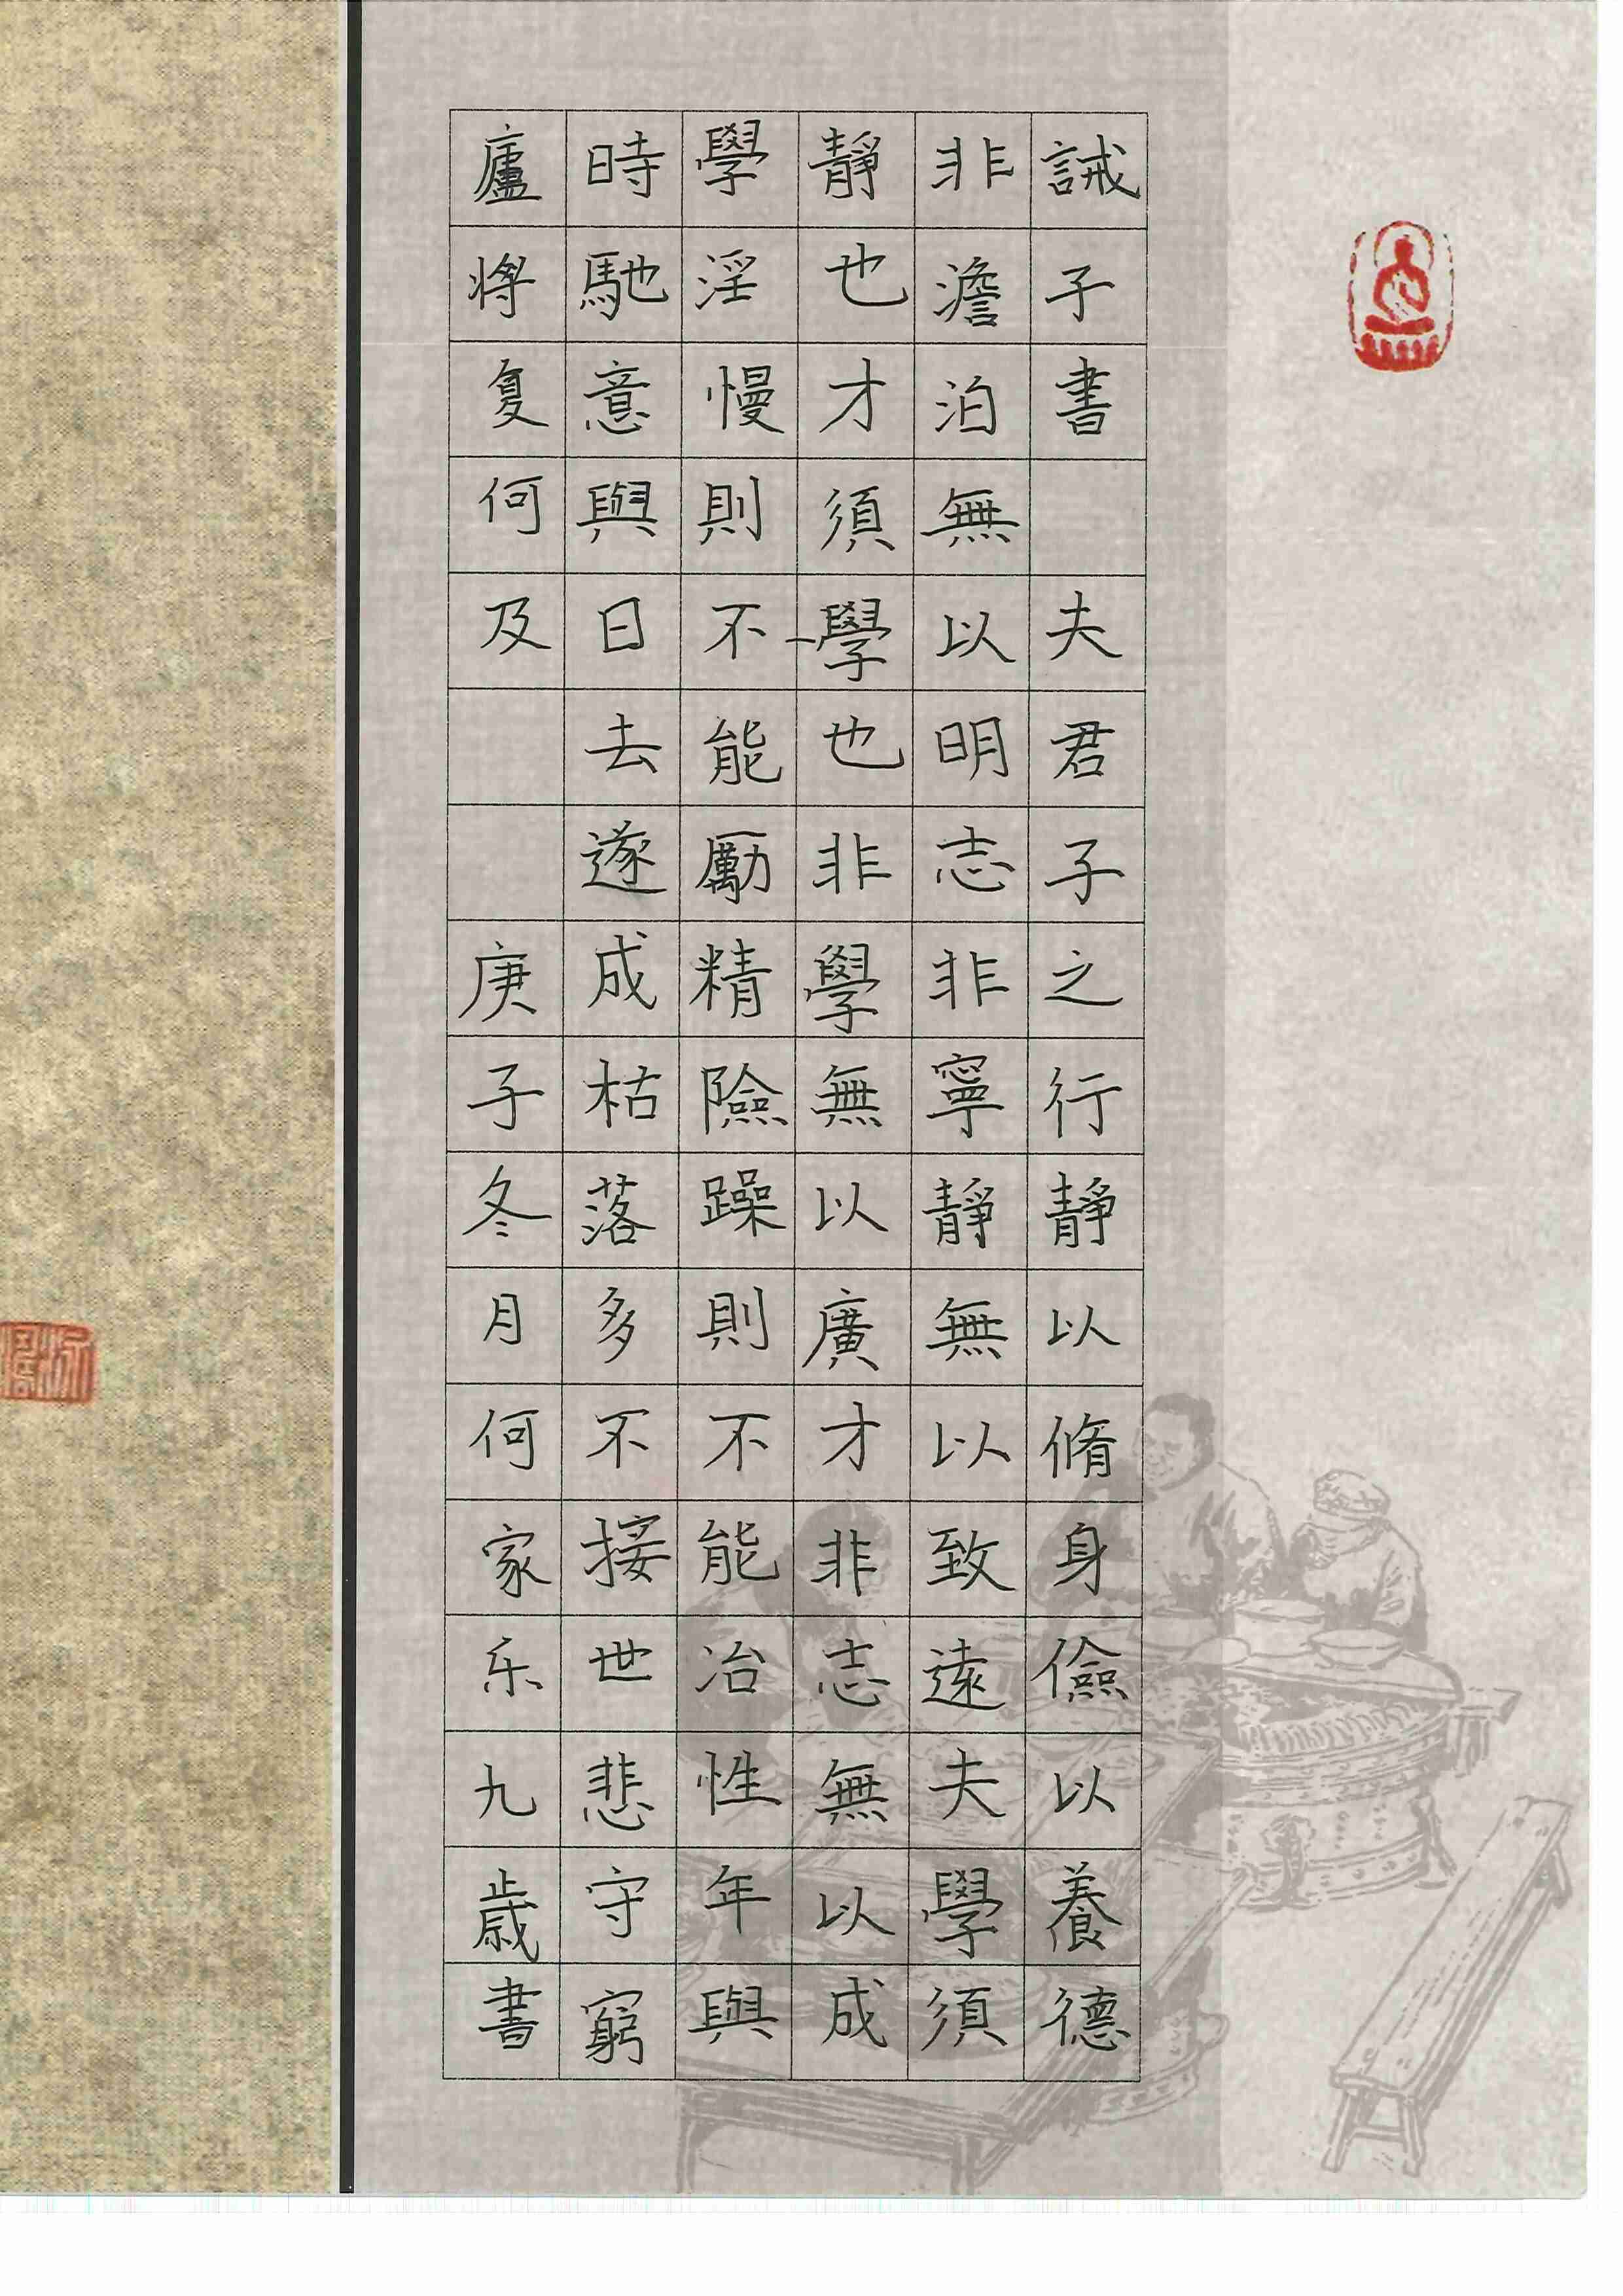 誡子書　夫君子之行靜以脩身儉以養德
非澹泊無以明志非寧靜無以致遠夫學須
靜也才須學也非學無以廣才非志無以成
學淫慢則不能勵精險躁則不能冶性年與
時馳意與日去遂成枯落多不接世悲守窮
廬將复何及　　庚子冬月何家乐九歲書